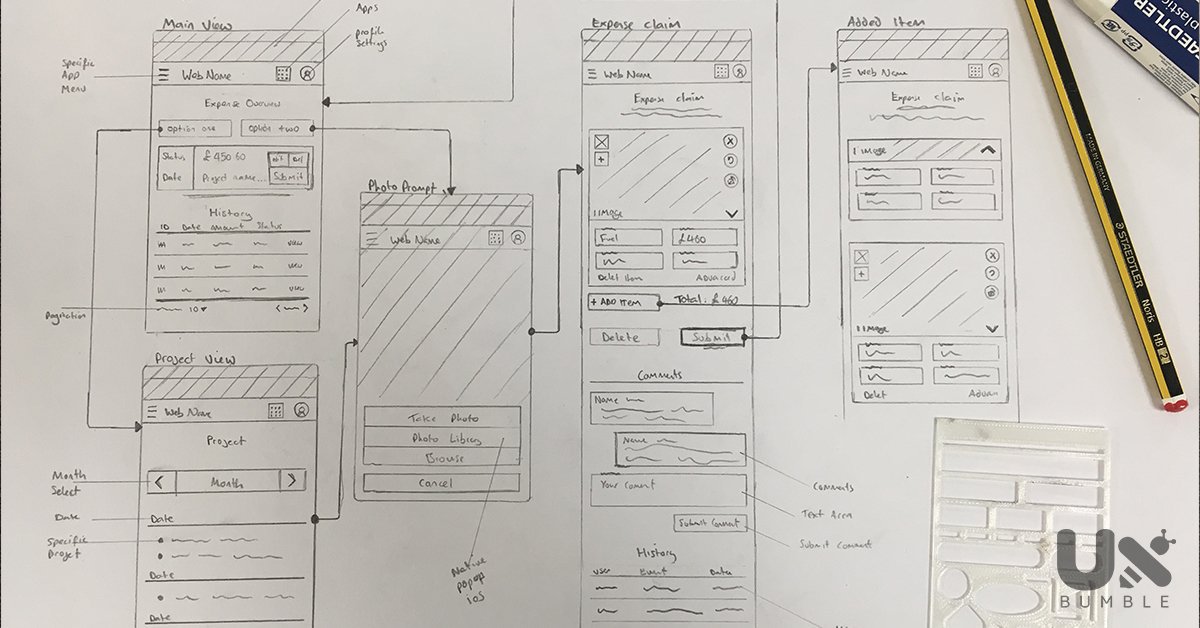 Main View
Apps
profile
settings
Specific
App
Menu
Web Name
Expense Overview
Option one
Option two
Status
£450.60
Submit
Date
Project name...
History
ID Date Amount Status
view
view
view
10
Pagination
Project View
Web Name
Project
Month
Select
Month
Date
Date
Specific
Project
Date
Date
Photo Prompt
Web Name
Take Photo
Photo Library
Browse
Cancel
Native
popup
ios
Expense Claim
Web Name
Expense Claim
1 Image
Fuel
£460
Delet Item
Advanced
+ ADD ITEM
Total: £460
Delete
Submit
Comments
Name
Name
Your Coment
Submit Coment
Comments
Text Area
Submit Comment
History
User
Event
Date
Added Item
Web Name
Expense Claim
1 Image
1 Image
Delet
Advan
STAEDTLER
plastic
MADE IN GERMANY
STAEDTLER
Noris
HB
UX
BUMBLE